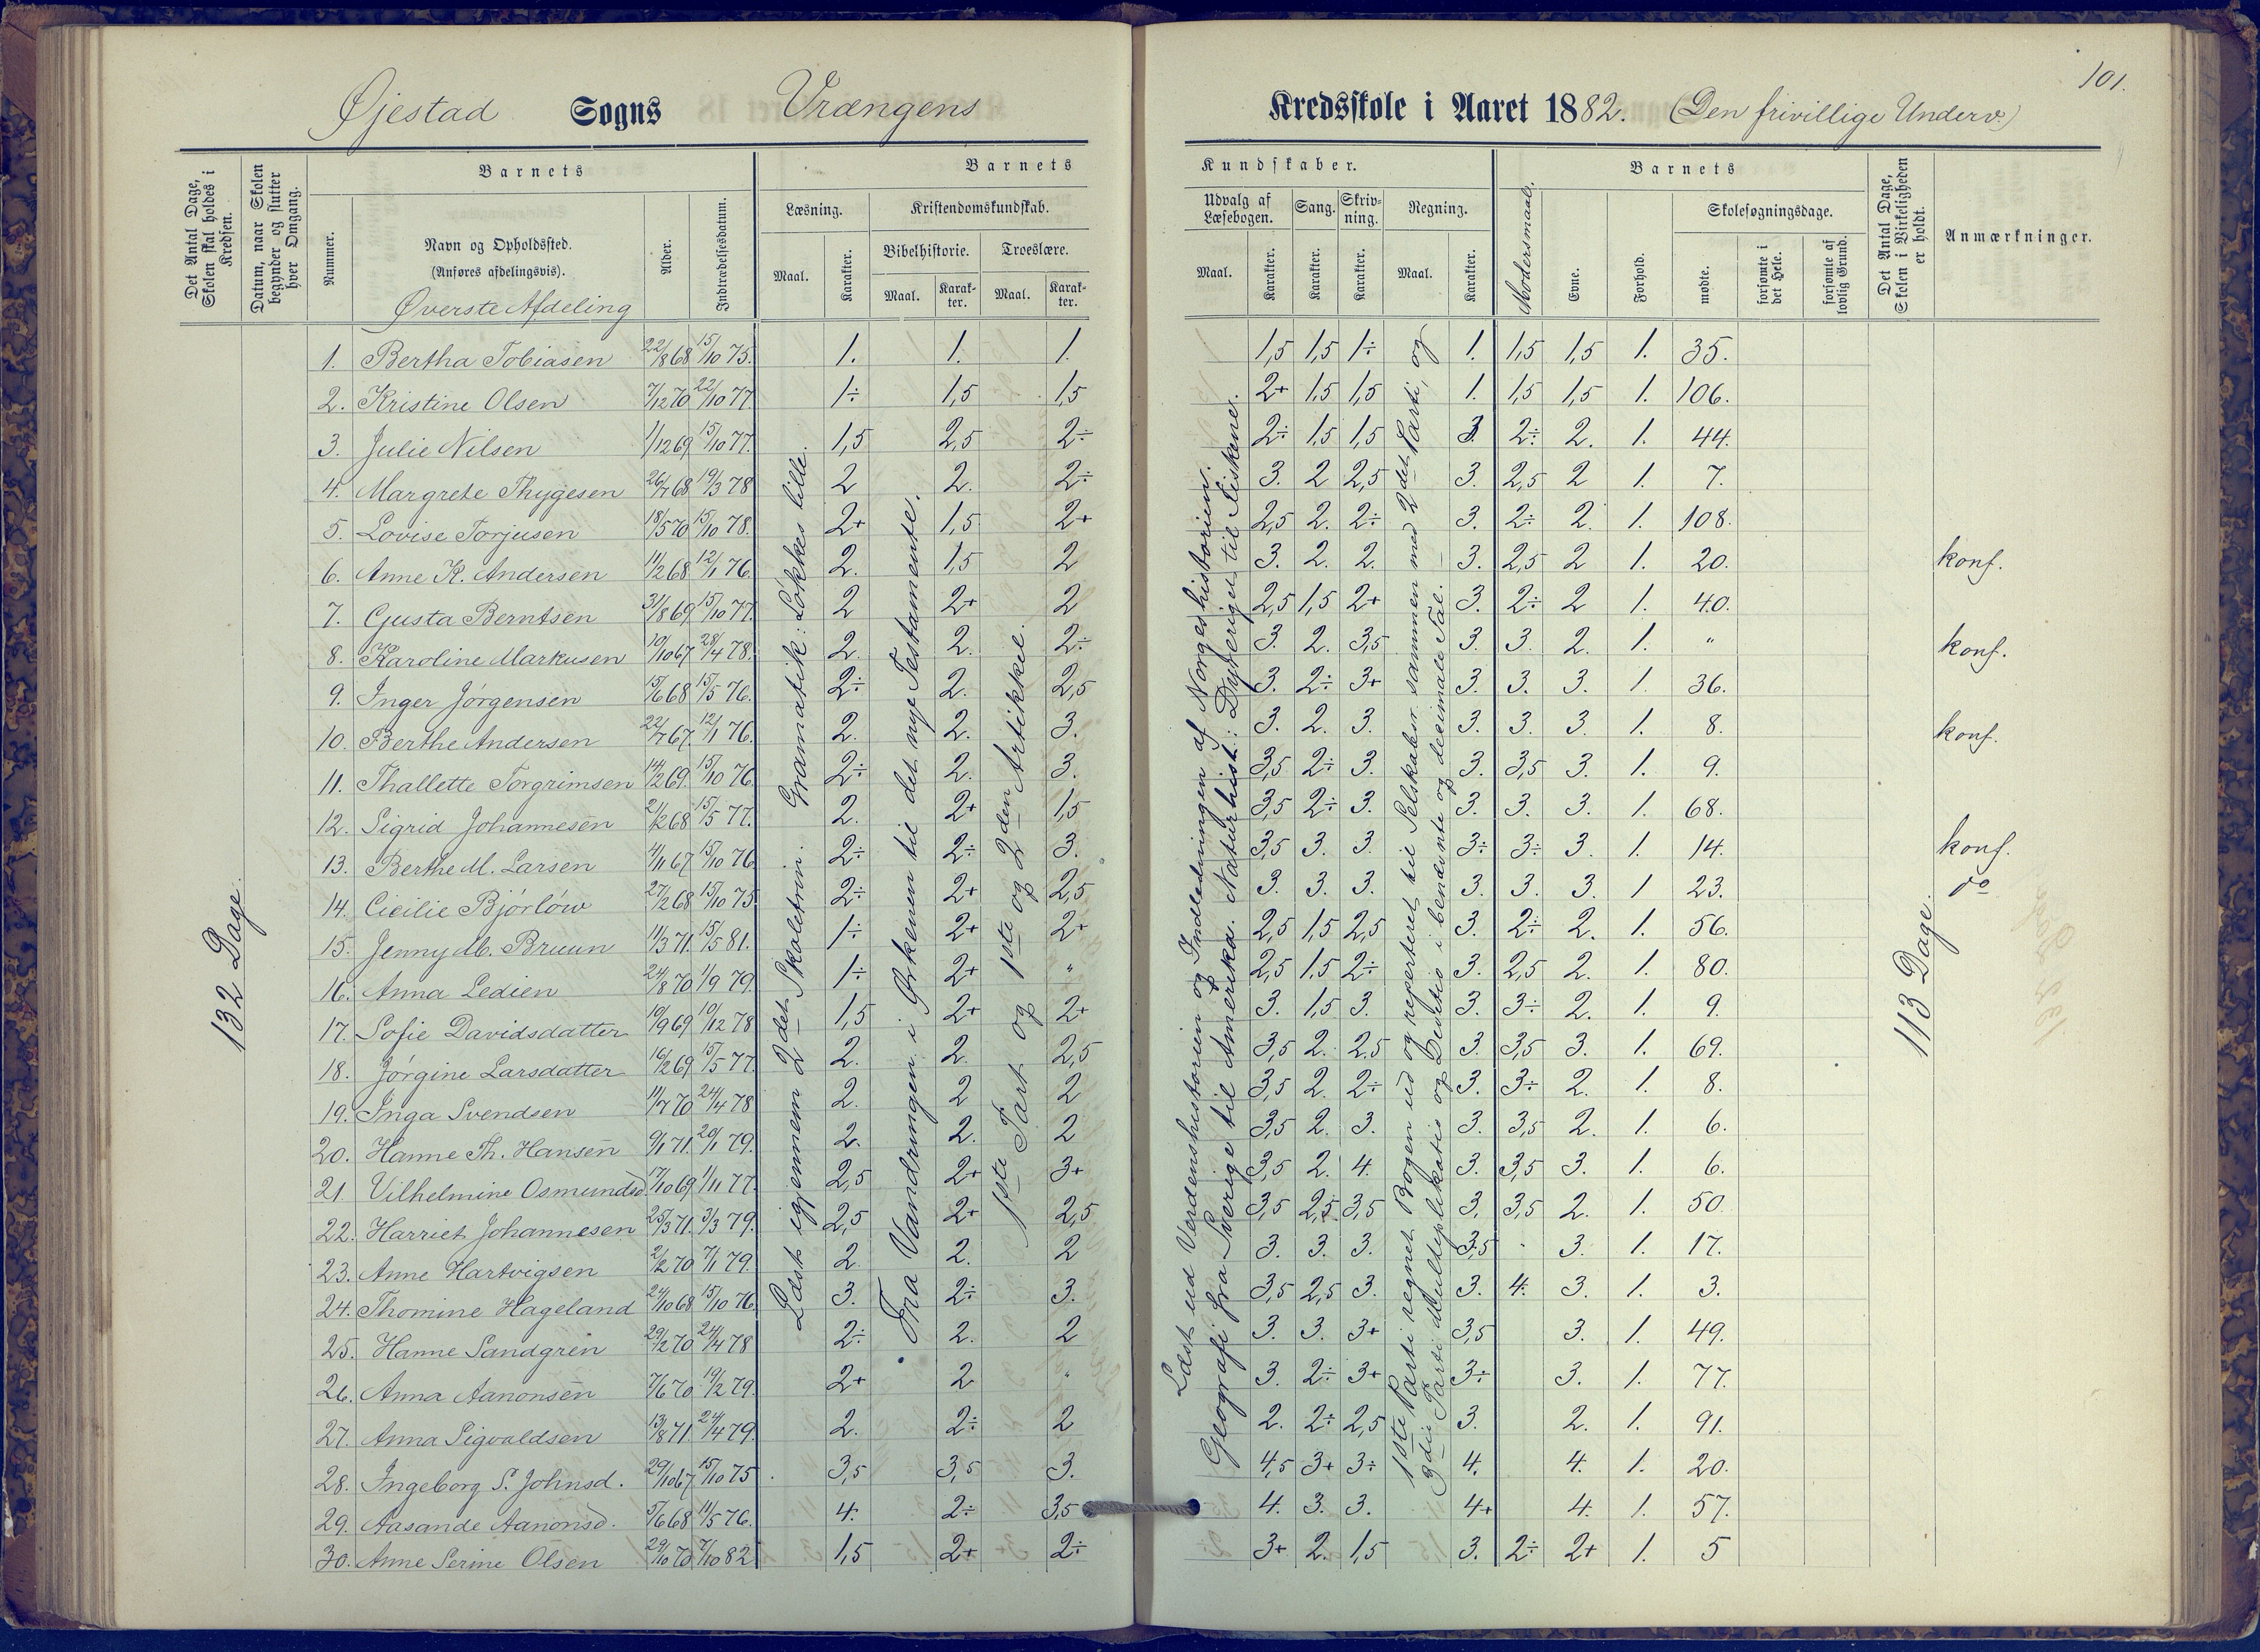 101.
Øjestad Sogns Vrængens Kredsskole i Aaret 1882. (Den frivillige Underv.)
Det Antal Dage, Skolen skal holdes i Kredsen.
Datum, naar Skolen begynder og slutter hver Omgang.
Barnets
Nummer.
Navn og Opholdssted.
(Anføres afdelingsvis).
Øverste Afdeling
Alder.
Indtrædelsesdatum.
Barnets Kundskaber.
Læsning. Kristendomskundskab. Udvalg af Læsebogen. Sang. Skrivning. Regning.
Bibelhistorie. Troeslære.
Maal. Karakter. Maal. Karakter. Maal. Karakter. Maal. Karakter. Karakter. Karakter. Maal. Karakter.
Modersmaal.
Barnets
Evne. Forhold. Skolesøgningsdage.
mødte. forsømte i det Hele. forsømte af lovlig Grund.
Det Antal Dage, Skolen i Virkeligheden er holdt.
Anmærkninger.
132 Dage.
1. Bertha Tobiasen 22/8 68 15/10 75. 1. 1. 1. 1,5 1,5 1÷ 1. 1,5 1,5 1. 35.
2. Kristine Olsen 7/12 70 22/10 77. 1÷ 1,5 1,5 2+ 1,5 1,5 1. 1,5 1,5 1. 106.
3. Julie Nilsen 1/12 69 15/10 77. 1,5 2,5 2÷ 2÷ 1,5 1,5 3. 2÷ 2. 1. 44.
4. Margrete Thygesen 26/7 68 19/3 78 2 2. 2÷ 3. 2 2,5 3. 2,5 2 1. 7.
5. Lovise Torjusen 18/5 70 15/10 78. 2+ 1,5 2+ 2,5 2. 2÷ 3. 2÷ 2. 1. 108.
6. Anne K. Andersen 11/2 68 12/1 76. 2. 1,5 2 3. 2. 2. 3. 2,5 2 1. 20. konf.
7. Gusta Berntsen 31/8 69 15/10 77. 2 2+ 2 2,5 1,5 2+ 3. 2÷ 2 1. 40.
8. Karoline Markusen 10/10 67 28/4 78. 2. 2. 2÷ 3. 2. 3,5 3. 3. 2. 1. " konf.
9. Inger Jørgensen 15/6 68 15/5 76. 2÷ 2. 2,5 3. 2÷ 3+ 3. 3. 3. 1. 36.
10. Berthe Andersen 22/7 67. 12/1 76. 2. 2. 3. 3. 2. 3. 3. 3. 3. 1. 8. konf.
11. Thallette Torgrimsen 14/2 69. 15/10 76. 2÷ 2. 3. 3,5 2÷ 3. 3. 3,5 3. 1. 9.
12. Sigrid Johannesen 2/2 68 15/5 77. 2. 2+ 1,5 3,5 2÷ 3. 3. 3. 3. 1. 68.
13. Berthe M. Larsen 4/11 67 15/10 76 2÷ 2÷ 3. 3,5 3. 3. 3÷ 3÷ 3. 1. 14. konf.
14. Cicilie Bjørløw 27/2 68 15/10 75 2÷ 2+ 2,5 3. 3. 3. 3. 3. 3. 1 23. do
15. Jenny M. Bruun 11/3 71. 15/5 81. 1÷ 2+ 2+ 2,5 1,5 2,5 3. 2÷ 2. 1. 56.
16. Anna Ledien 24/8 70 1/9 79. 1÷ 2+ " 2,5 1,5 2÷ 3. 2,5 2. 1. 80.
17. Sofie Davidsdatter 19/9 69 19/12 78 1,5 2+ 2+ 3. 1,5 3. 3. 3÷ 2. 1. 9.
18. Jørgine Larsdatter 16/2 69 15/5 77. 2. 2. 2,5 3,5 2. 2,5 3. 3,5 3. 1. 69.
19. Inga Svendsen 11/7 70 24/4 78 2. 2 2 3,5 2. 2÷ 3. 3÷ 2. 1. 8.
20. Hanne Th. Hansen 9/1 71. 20/1 79. 2. 2. 2 3,5 2. 3. 3. 3,5 2. 1. 6.
21. Vilhelmine Osmundsd. 17/10 69 1/11 77. 2,5 2+ 3+ 3,5 2. 4. 3. 3,5 3. 1. 6.
22. Harriet Johannesen 25/3 71. 3/3 79. 2,5 2+ 2,5 3,5 2,5. 3,5 3. 3,5 2. 1. 50.
23. Anne Hartvigsen 2/2 70 7/1 79. 2. 2. 2 3. 3. 3. 3,5 3. 1. 17.
24. Thomine Hageland 24/10 68 15/10 76. 3. 2÷ 3. 3,5 2,5 3. 3. 4. 3. 1. 3.
25. Hanne Sandgren 29/2 70 24/4 78 2÷ 2. 2 3. 3. 3+ 3,5 3. 1. 49.
26. Anna Aanonsen 7/6 70 19/2 79. 2+ 2 " 3. 2÷ 3+ 3÷ 3. 1. 77.
27. Anna Sigvaldsen 13/8 71. 24/4 79. 2. 2÷ 2 2. 2÷ 2,5 3. 2. 1. 91.
28. Ingeborg S. Johnsd. 29/10 67 15/10 75. 3,5 3,5 3. 4,5 3+ 3÷ 4. 4. 1. 20.
29. Aasande Aanonsd. 5/6 68 11/5 76. 4. 2÷ 3,5 4. 3. 3. 4+ 4. 1. 57.
30. Anne Serine Olsen 29/10 70 7/10 82 1,5 2+ 2÷ 3+ 2. 1,5 3. 2÷ 2+ 1. 5
Læst igjennem 2det Skoletrin. Grammatik: Løkkes lille.
Fra Vandringen i Ørkenen til det nye Testamente.
1ste Part og 1ste og 2den Artikkel.
Læst ud Verdenshistorien og Indledningen af Norges historien.
Geografi fra Sverige til Amerika. Naturhist.: Dyreriget til Fiskene.
1ste Parti regnet Bogen ud og repeteret til Selskabsr. sammen med 2det Parti, og
3die Parti Multiplikatio og Deletio i benævnte og decimale Tal.
113 Dage.